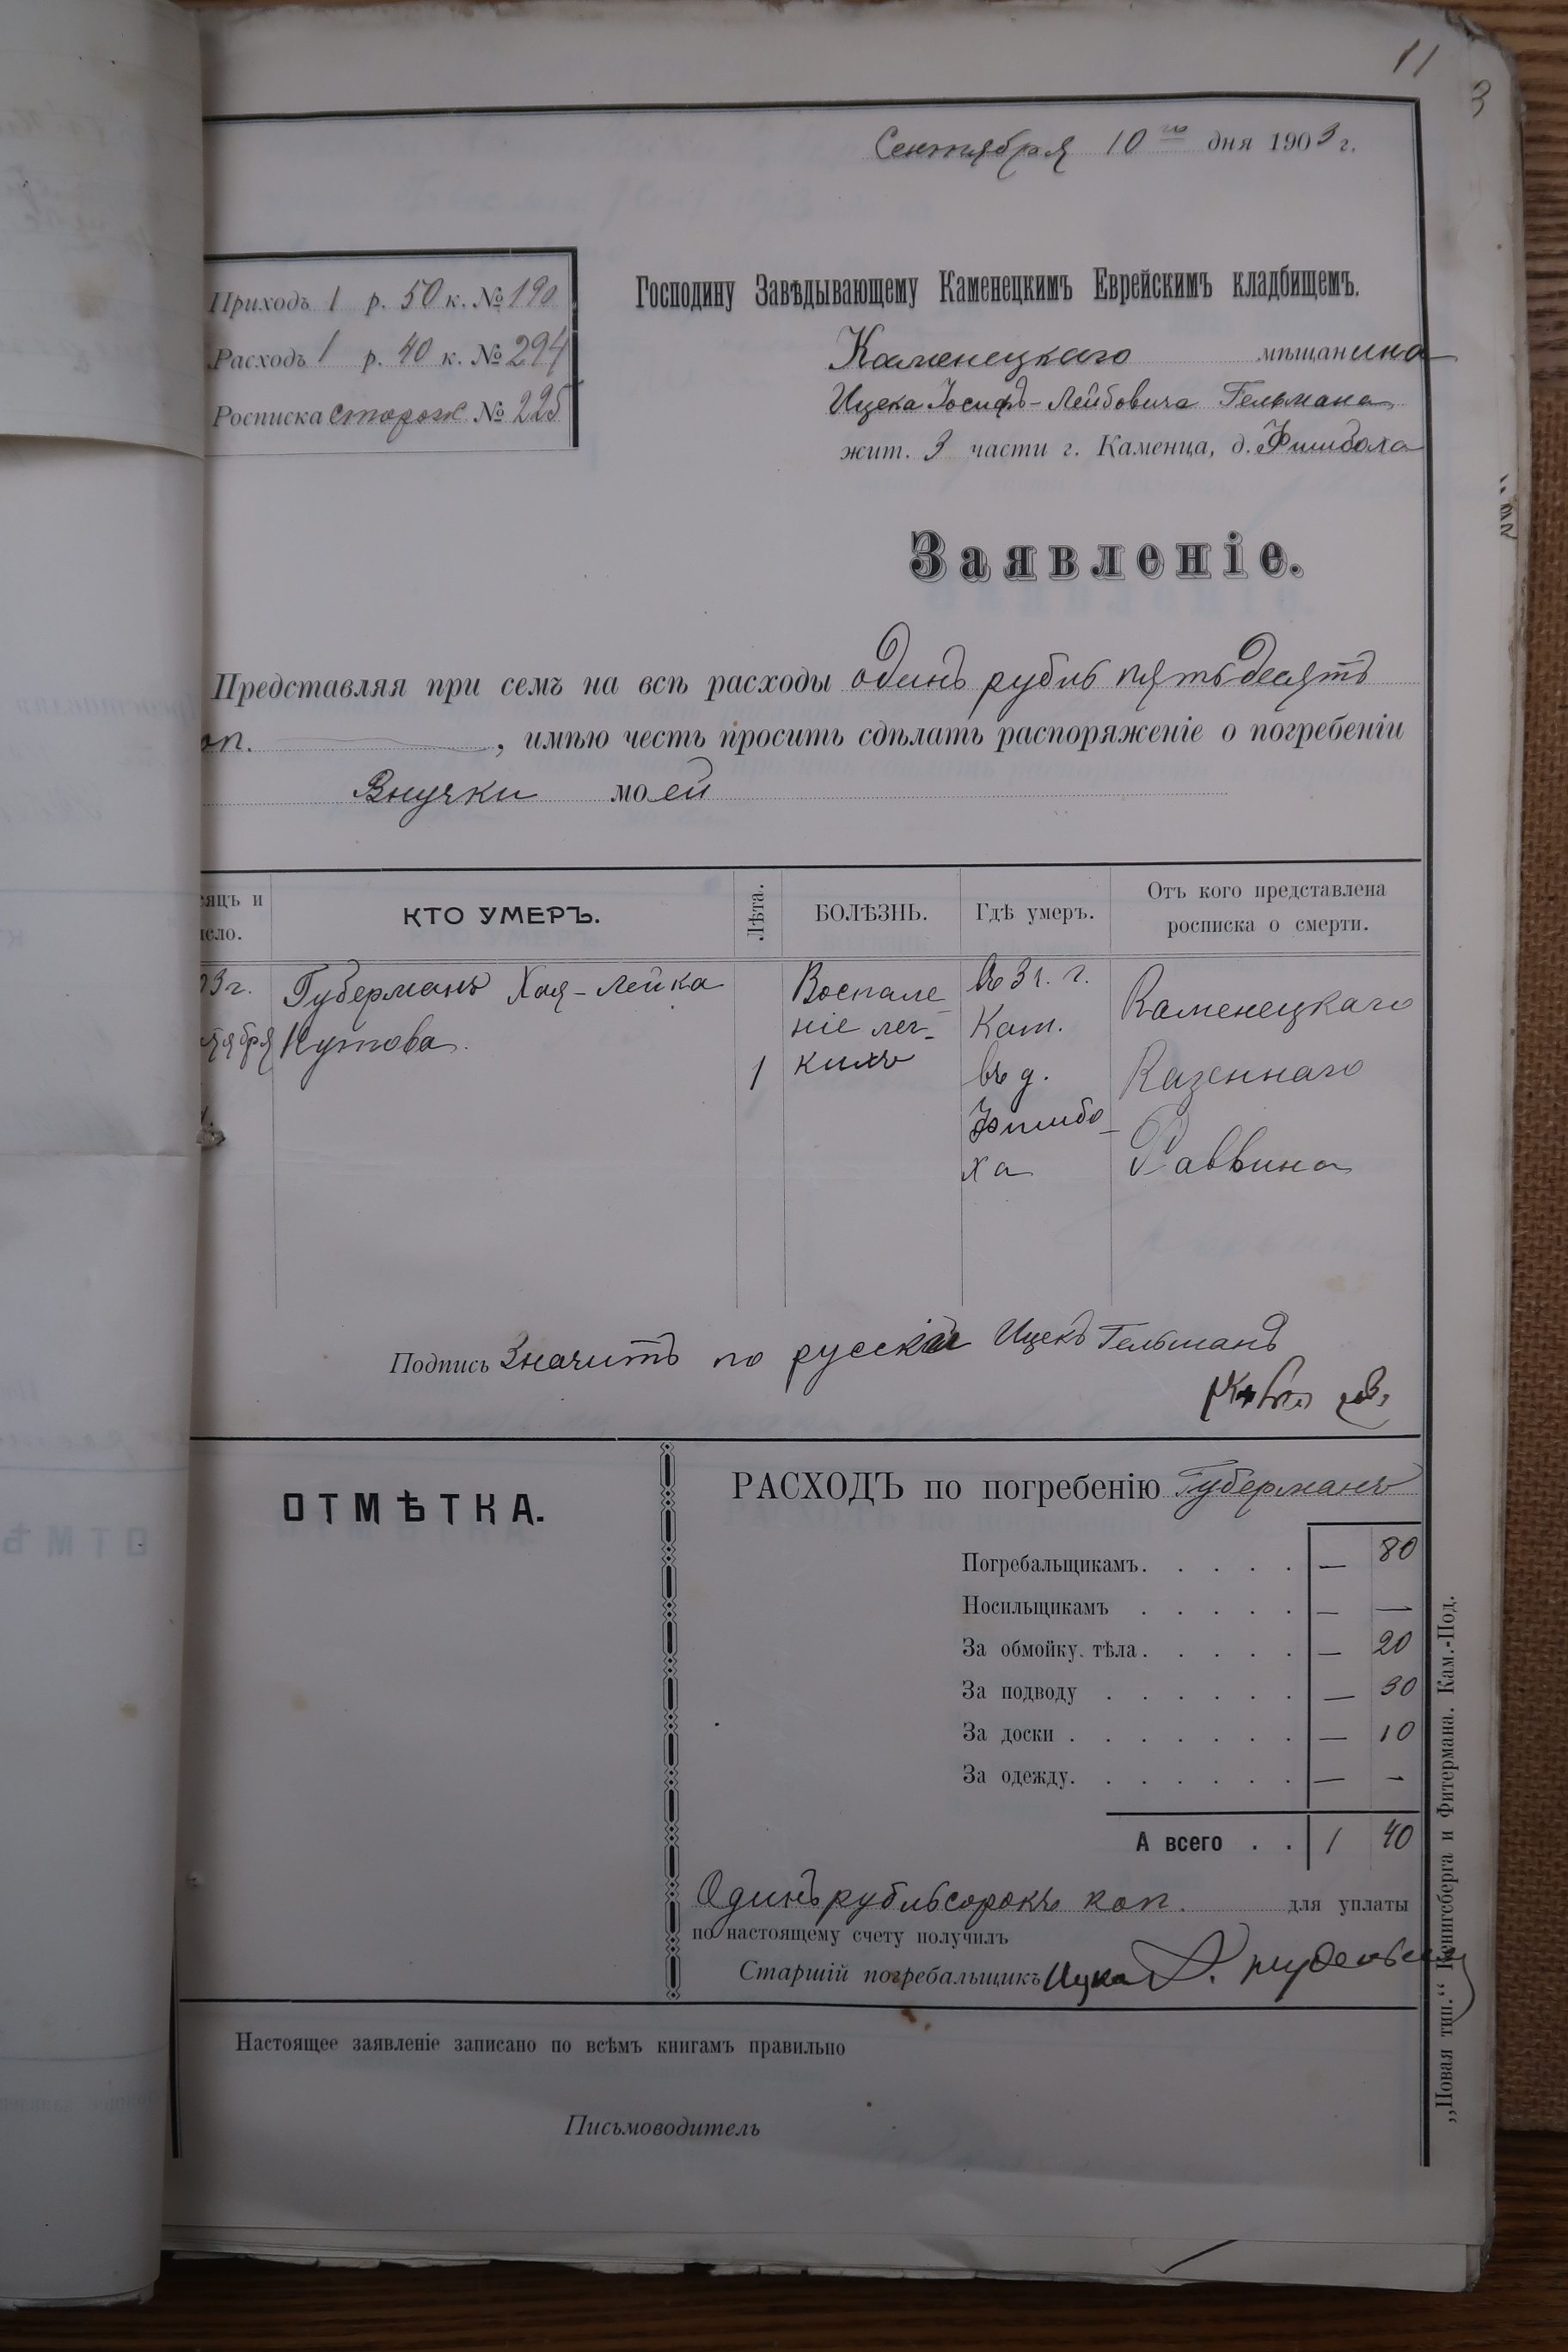 11
3
Сентября 10го дня 1903 г.
Приходъ 1 р. 50 к. № 190
Расходъ 1 р. 40 к. № 294
Росписка сторож № 225
Господину Завѣдывающему Каменецкимъ Еврейскимъ кладбищемъ.
Каменецкаго мѣщанина
Ицека Іосифъ-Лейбовича Гельмана
жит. 3 части г. Каменца, д. Фишбаха
Заявленіе.
Представляя при семъ на всѣ расходы одинъ рубль пятьдесятъ
оп. , имѣю честь просить сдѣлать распоряженіе о погребеніи
Внучки моей
сяцъ и
исло.
КТО УМЕРЪ.
Лѣта.
БОЛѢЗНЬ.
Гдѣ умеръ.
Отъ кого представлена
росписка о смерти.
03 г.
тября
Губерманъ Хая-Лейка
Кутова.
1
Воспале
ніе лег-
кихъ
Во 3 ч. г.
Кам.
въ д.
Фишба-
ха
Каменецкаго
Казеннаго
Раввина
Подпись Значитъ по русски Ицекъ Гельманъ
ОТМѢТКА.
РАСХОДЪ по погребенію Губерманъ
Погребальщикамъ. . . . . — 80
Носильщикамъ . . . . . — —
За обмойку тѣла. . . . . — 20
За подводу . . . . . . — 30
За доски . . . . . . . — 10
За одежду. . . . . . . — -
А всего . . 1 40
Одинъ рубль сорокъ коп. для уплаты
по настоящему счету получилъ
Старшій погребальщикъ Ицка
Настоящее заявленіе записано по всѣмъ книгамъ правильно
Письмоводитель
„Новая тип.“ Кенигсберга и Фитермана. Кам.-Под.